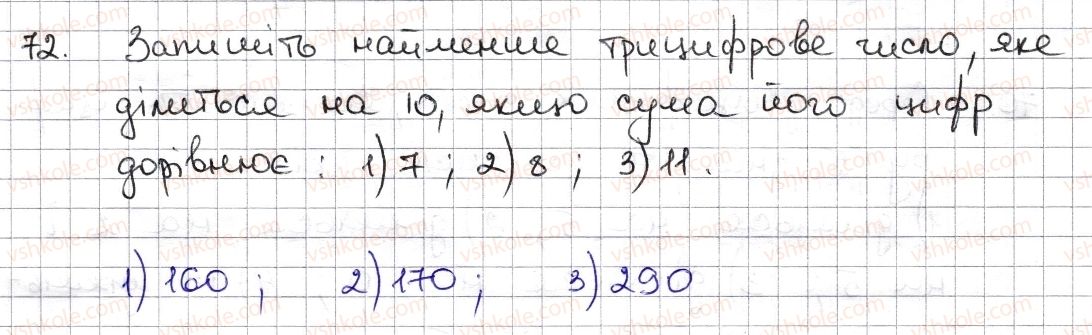 72. Запишіть найменше трицифрове число, яке
ділиться на 10, якщо сума його цифр
дорівнює : 1) 7 ; 2) 8 ; 3) 11 .
1) 160 ; 2) 170 ; 3) 290